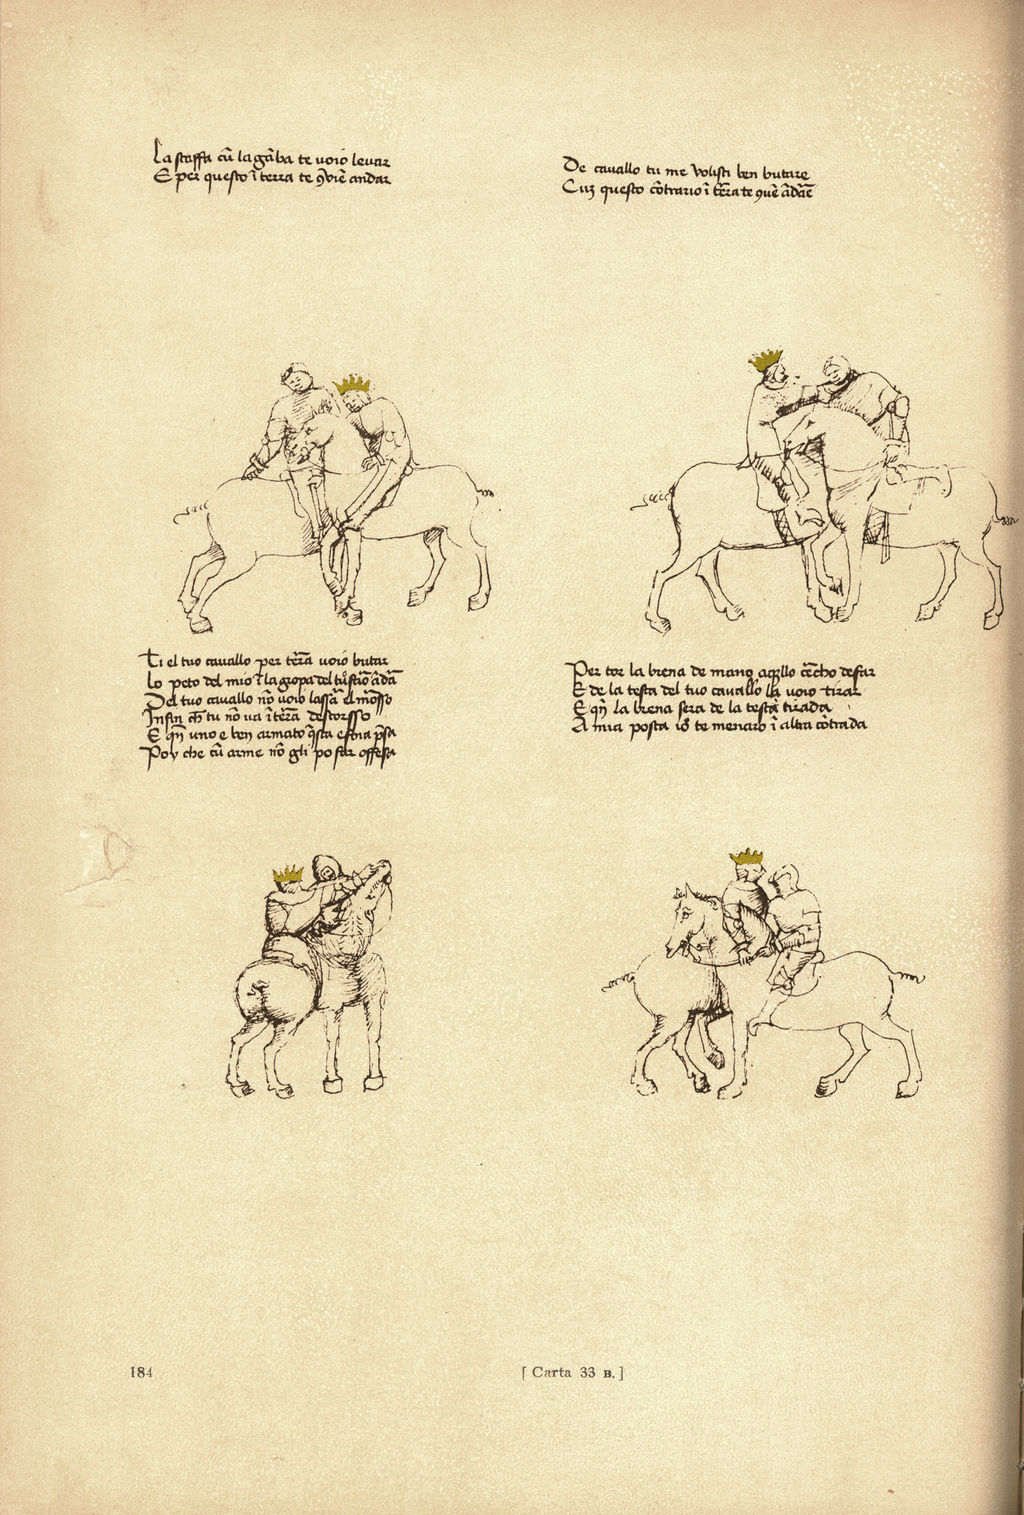 La staffa cũ la gãba te voio levar
E per questo ĩ terra te ꝯviẽ andar
De cavallo tu me volisti ben butare
Cuz questo cõtrario ĩ tẽra te ꝯuẽ ãdãe
Ti el tuo cavallo per tẽra voio butar
Lo peto del mio ĩ la gropa del ãdã
Del tuo cavallo nõ voio lassã el
Infin tu nõ va ĩ tẽra destorsso
E qñ uno e ben armato q̃sta e p̃sa
Poy che cũ arme nõ gli po far offesa
Per tor la brena de mano a cẽcho desfar
E de la testa del tuo cavallo la voio tirar
E qñ la brena sera de la testa tirada
A mia posta io te menaro ĩ altra cõtrada
184
[ Carta 33 B. ]